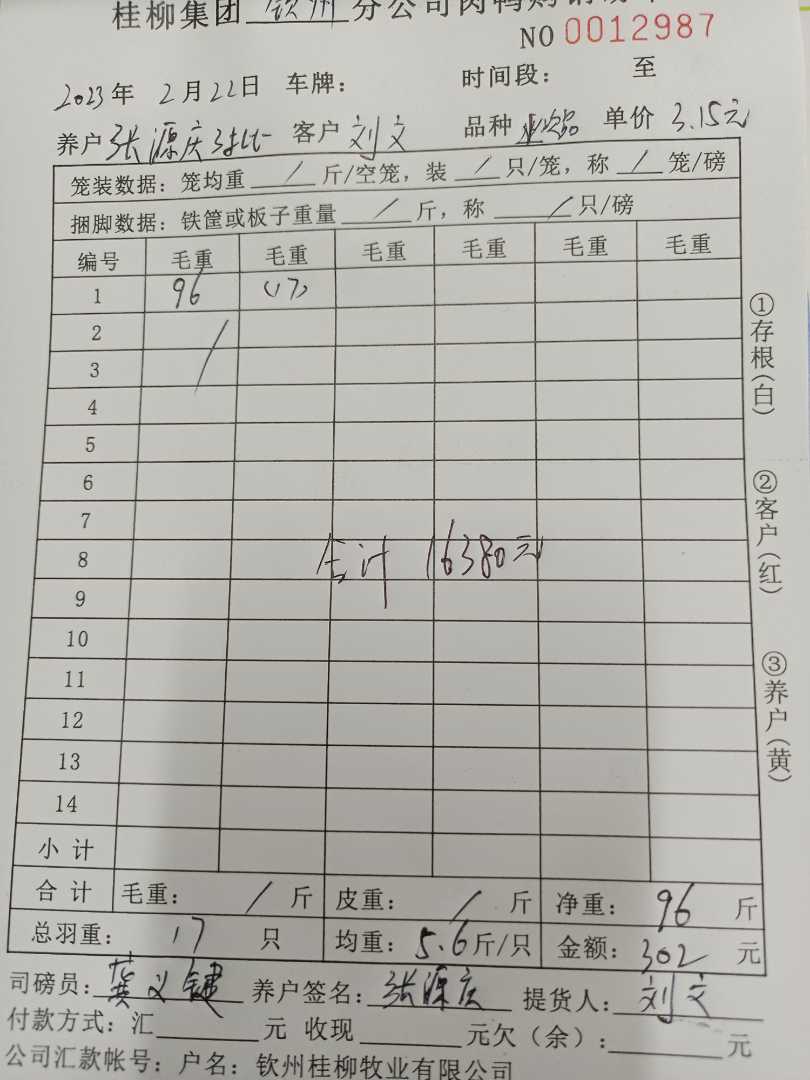 桂柳集团 钦州 分公司肉鸭购销
NO 0012987
2023年 2月22日 车牌： 时间段： 至
养户 张源庆 客户 刘文 品种 次品 单价 3.15元
笼装数据：笼均重 / 斤/空笼，装 / 只/笼，称 / 笼/磅
捆脚数据：铁筐或板子重量 / 斤，称 / 只/磅
编号 毛重 毛重 毛重 毛重 毛重 毛重
1 96 (17)
2 /
3
4
5
6
7
8 合计 16380元
9
10
11
12
13
14
小计
合计 毛重： / 斤 皮重： / 斤 净重： 96 斤
总羽重： 17 只 均重： 5.6 斤/只 金额： 302 元
司磅员： 龚义键 养户签名： 张源庆 提货人： 刘文
付款方式：汇 元 收现 元欠（余）： 元
公司汇款帐号：户名：钦州桂柳牧业有限公司
①存根（白）
②客户（红）
③养户（黄）